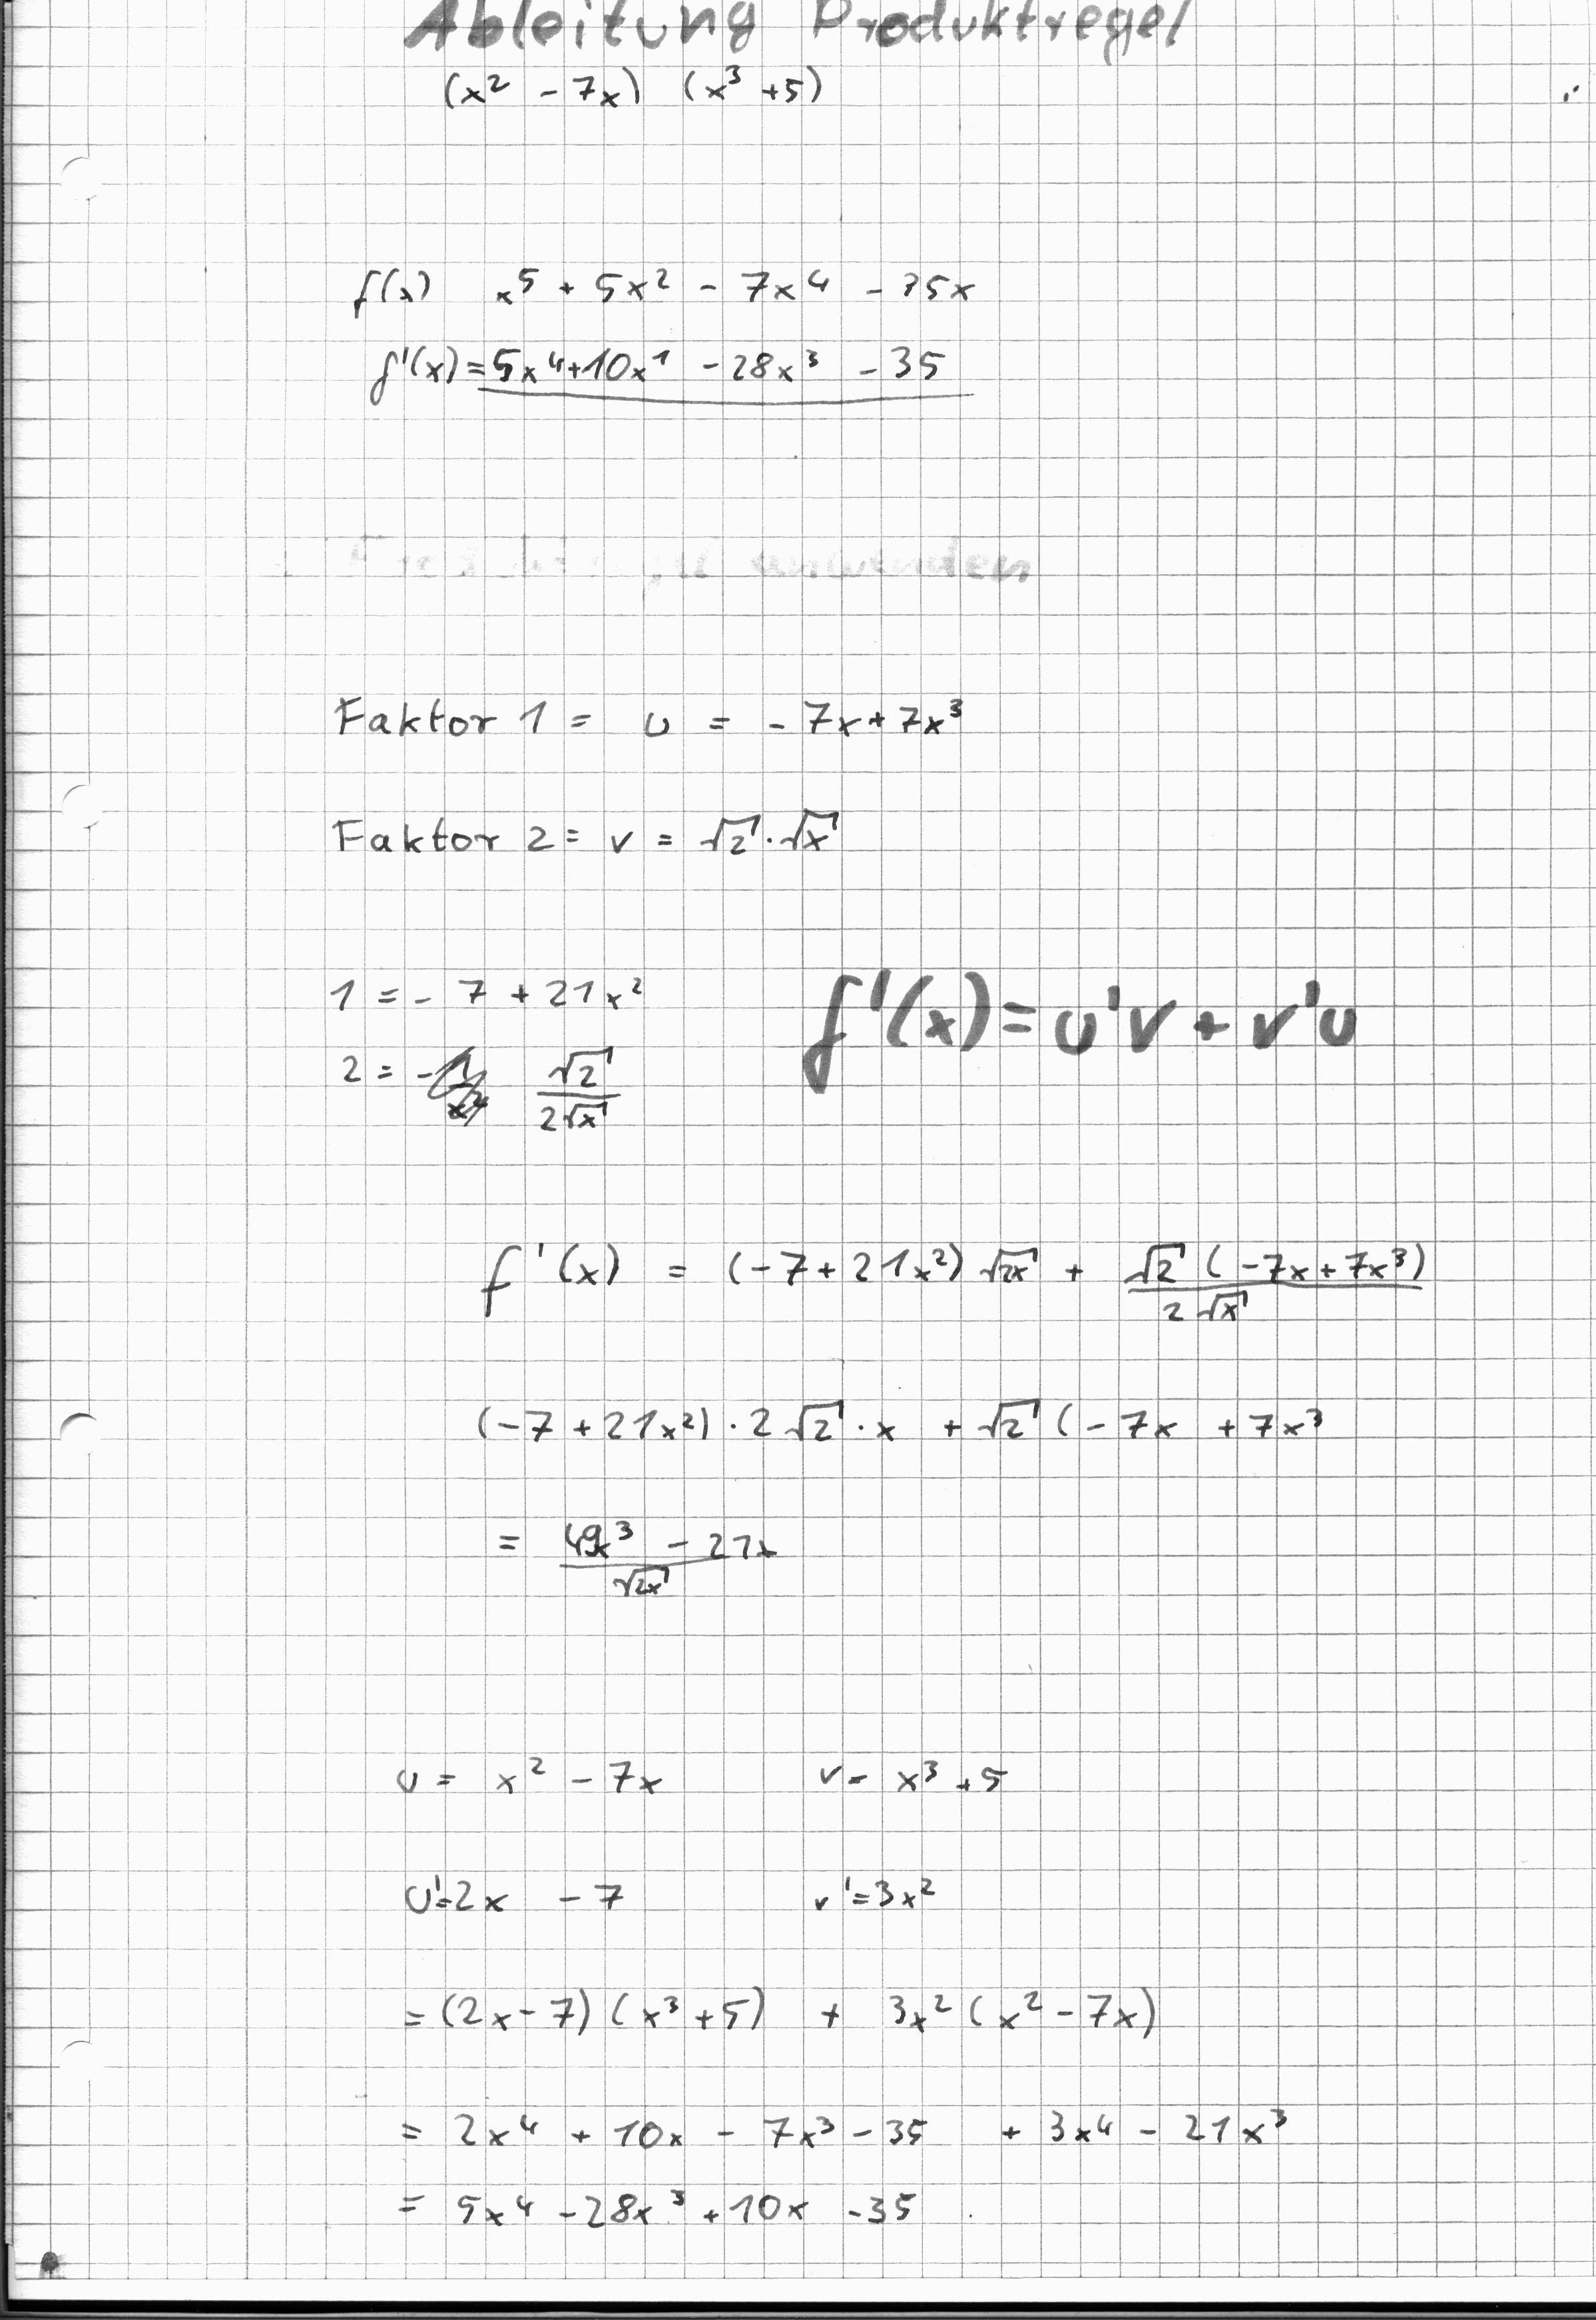 Ableitung Produktregel
(x² - 7x) (x³ + 5)
f(x) x⁵ + 5x² - 7x⁴ - 35x
f'(x) = 5x⁴ + 10x¹ - 28x³ - 35
anwenden
Faktor 1 = u = - 7x + 7x³
Faktor 2 = v = √2 · √x
1 = - 7 + 21x²
f'(x) = u'v + v'u
2 = - √2 / 2√x
f'(x) = (-7 + 21x²) √2x + √2 (-7x + 7x³) / 2√x
(-7 + 21x²) · 2√2 · x + √2 (-7x + 7x³
= 49x³ - 21x / √2x
u = x² - 7x v = x³ + 5
u' = 2x - 7 v' = 3x²
= (2x - 7) (x³ + 5) + 3x² (x² - 7x)
= 2x⁴ + 10x - 7x³ - 35 + 3x⁴ - 21x³
= 5x⁴ - 28x³ + 10x - 35